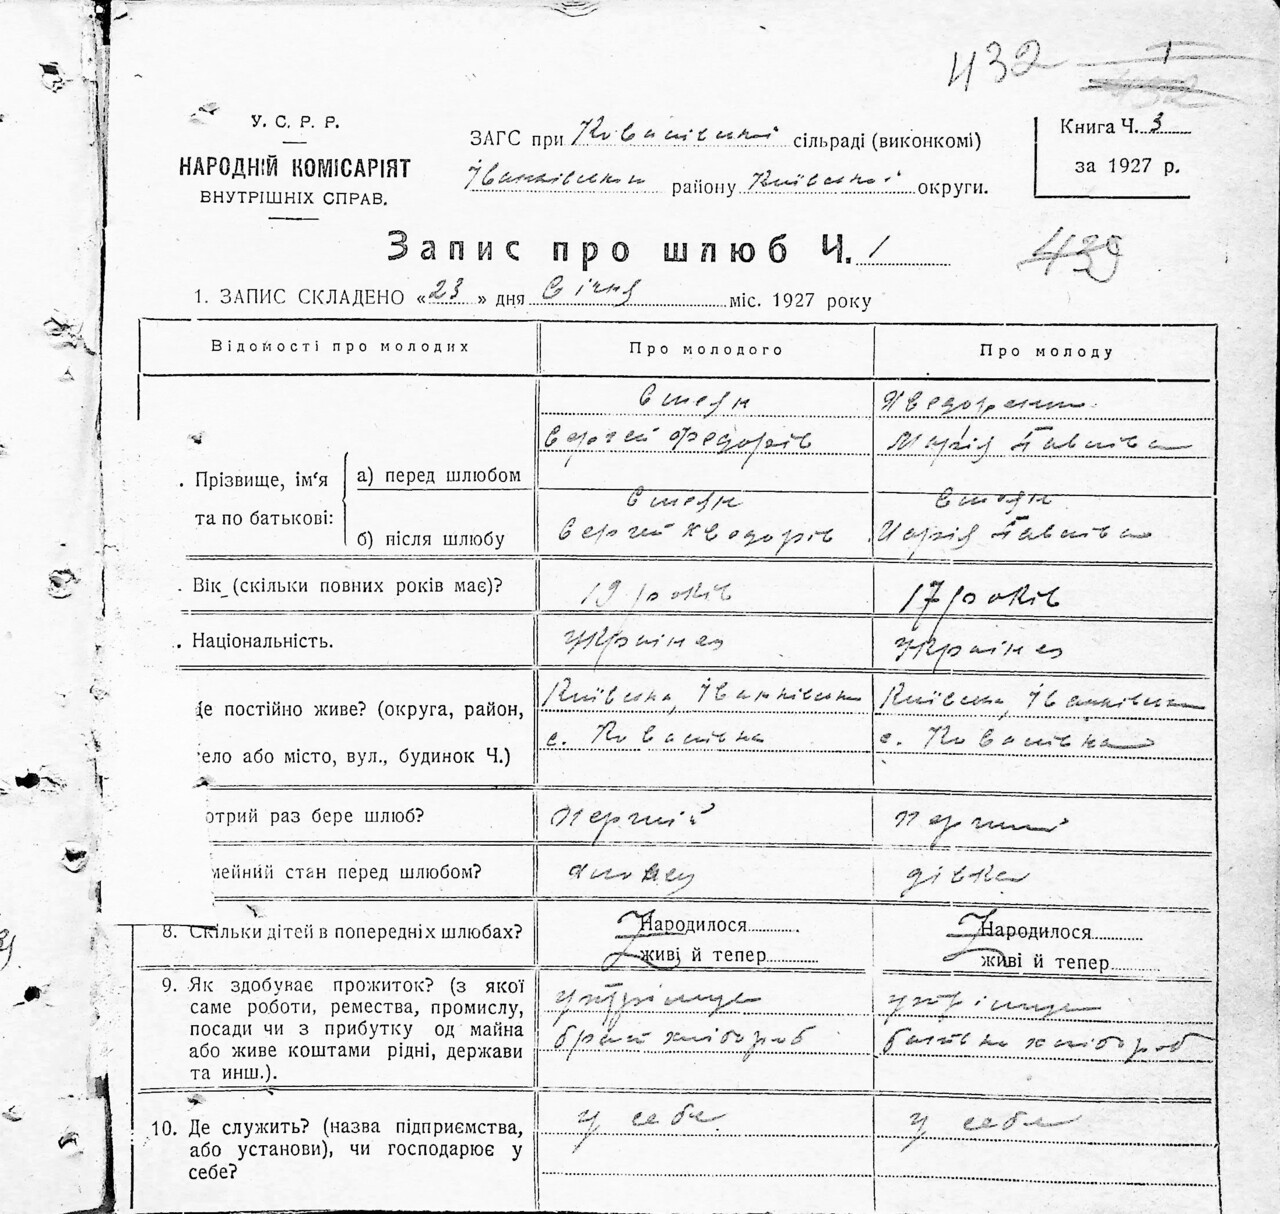 432
У. С. Р. Р.
НАРОДНІЙ КОМІСАРІЯТ
ВНУТРІШНІХ СПРАВ.
ЗАГС при сільраді (виконкомі)
Іванківським району Київської округи.
Книга Ч. 3
за 1927 р.
Запис про шлюб Ч. 1
439
1. ЗАПИС СКЛАДЕНО «23» дня Січня міс. 1927 року
Відомості про молодих
Про молодого
Про молоду
Прізвище, ім'я
та по батькові:
а) перед шлюбом
б) після шлюбу
Стоян
Сергей Федорів
Марія Павлівна
Стоян
Сергей Хведорів
Стоян
Марія Павлівна
Вік (скільки повних років має)?
19 років
17 років
Національність.
Українец
Українка
Де постійно живе? (округа, район,
село або місто, вул., будинок Ч.)
Київська, Іванківська
с. Ковалівка
Київська, Іванківська
с. Ковалівка
отрий раз бере шлюб?
Перший
перший
мейний стан перед шлюбом?
дівка
8. Скільки дітей в попередніх шлюбах?
Народилося
живі й тепер
Народилося
живі й тепер
9. Як здобуває прожиток? (з якої
саме роботи, ремества, промислу,
посади чи з прибутку од майна
або живе коштами рідні, держави
та инш.).
брат хлібороб
батько хлібороб
10. Де служить? (назва підприємства,
або установи), чи господарює у
себе?
у себе
у себе